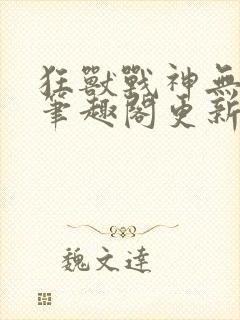 狂獸戰神無
筆趣閣更新
魏文達